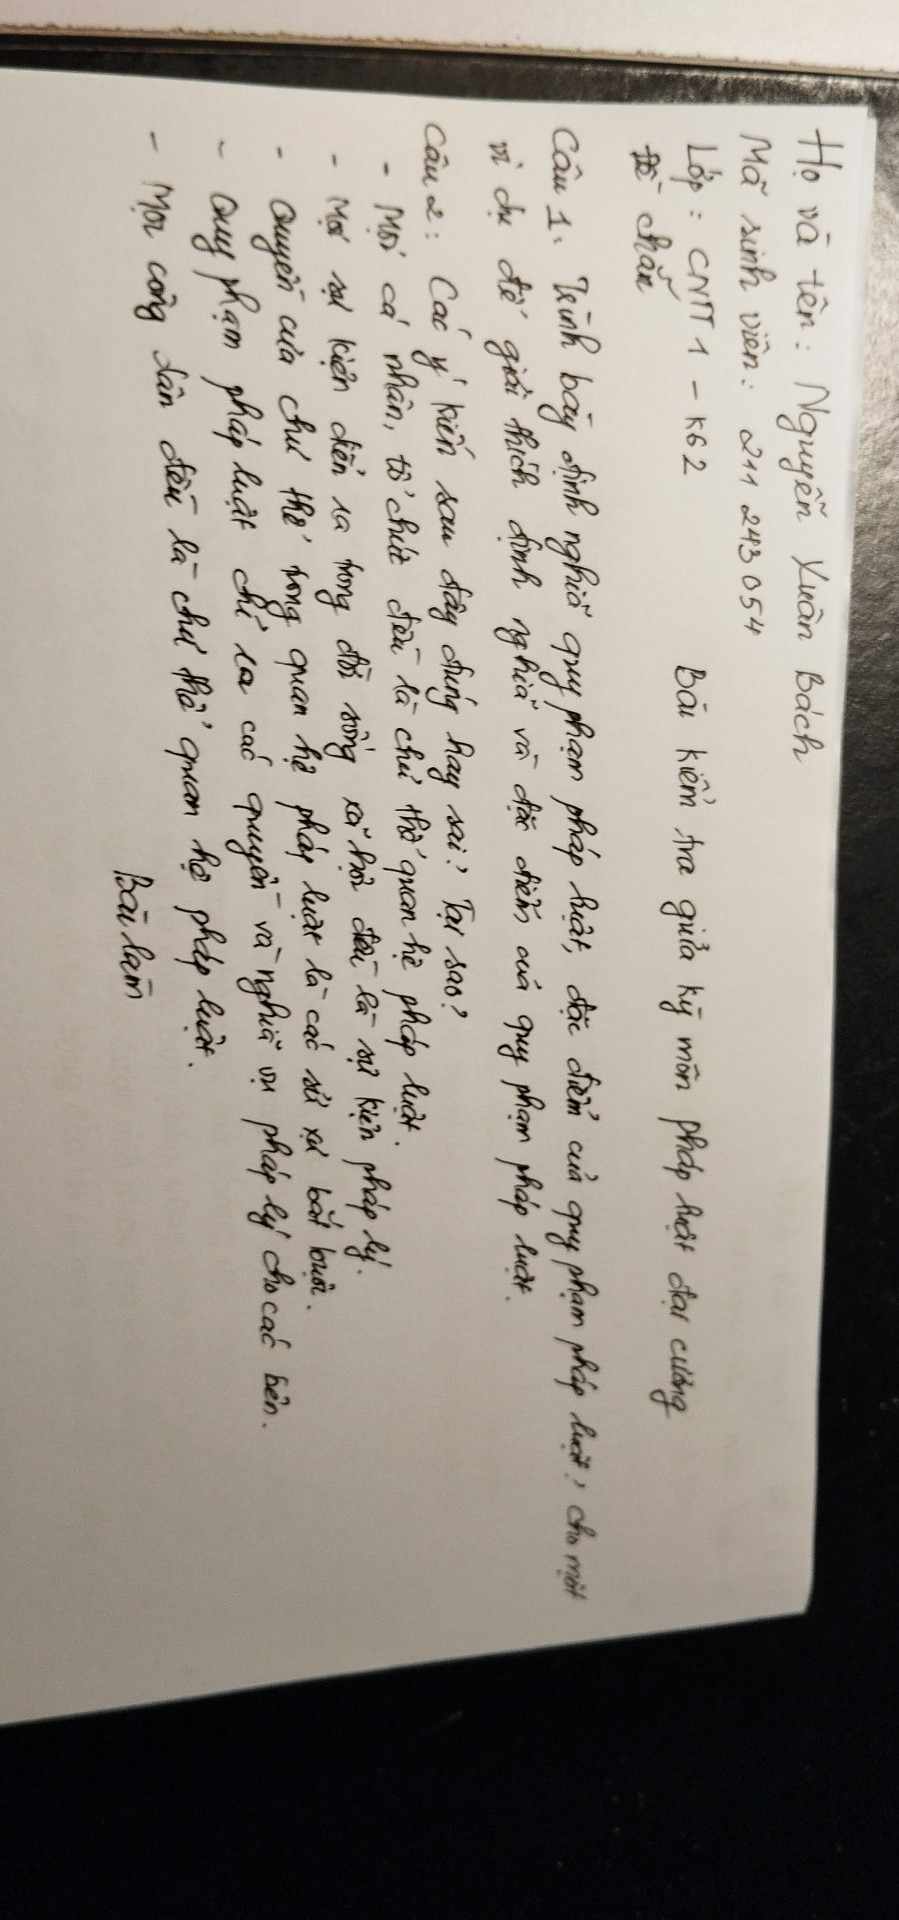 Họ và tên: Nguyễn Xuân Bách
Mã sinh viên: 211 243 054
Lớp: CNTT 1 - K62
Bài kiểm tra giữa kỳ môn pháp luật đại cương
Đề chẵn
Câu 1: Trình bày định nghĩa quy phạm pháp luật, đặc điểm của quy phạm pháp luật? cho một
ví dụ để giải thích định nghĩa và đặc điểm của quy phạm pháp luật.
Câu 2: Các ý kiến sau đây đúng hay sai? Tại sao?
- Mọi cá nhân, tổ chức đều là chủ thể quan hệ pháp luật.
- Mọi sự kiện diễn ra trong đời sống xã hội đều là sự kiện pháp lý.
- Quyền của chủ thể trong quan hệ pháp luật là các xử sự bắt buộc.
- Quy phạm pháp luật chỉ ra các quyền và nghĩa vụ pháp lý cho các bên.
- Mọi công dân đều là chủ thể quan hệ pháp luật.
Bài làm